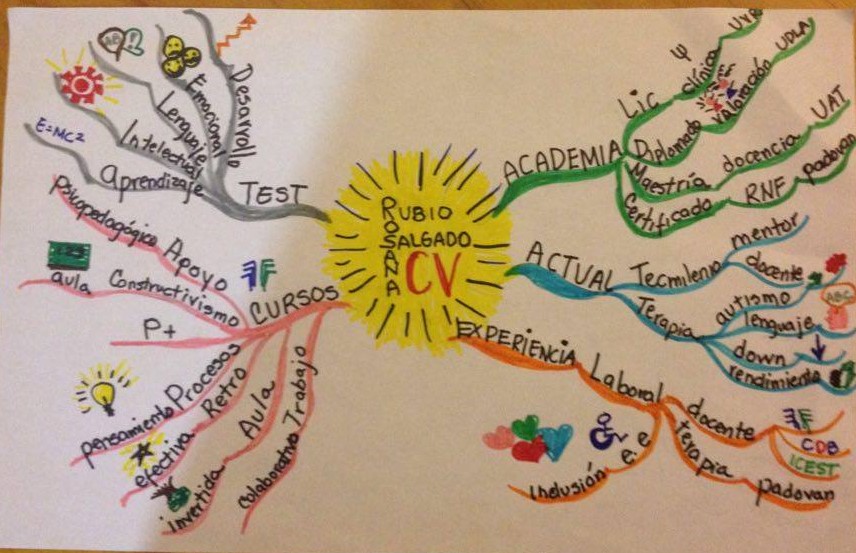 RUBIO
SALGADO
ROSANA
CV
ACADEMIA
Lic
Ψ
clínica
UVR
Diplomado
valoración
UDLA
Maestría
docencia
UAT
Certificado
RNF
padovan
ACTUAL
Tecmilenio
mentor
docente
Terapia
autismo
lenguaje
ABC
down
rendimiento
EXPERIENCIA
Laboral
docente
CDB
ICEST
terapia
padovan
e.e
inclusión
CURSOS
Apoyo
psicopedagógico
Constructivismo
aula
P+
Procesos
pensamiento
Retro
efectiva
Aula
invertida
Trabajo
colaborativo
TEST
Desarrollo
Emocional
Lenguaje
Intelectual
Aprendizaje
E=MC2